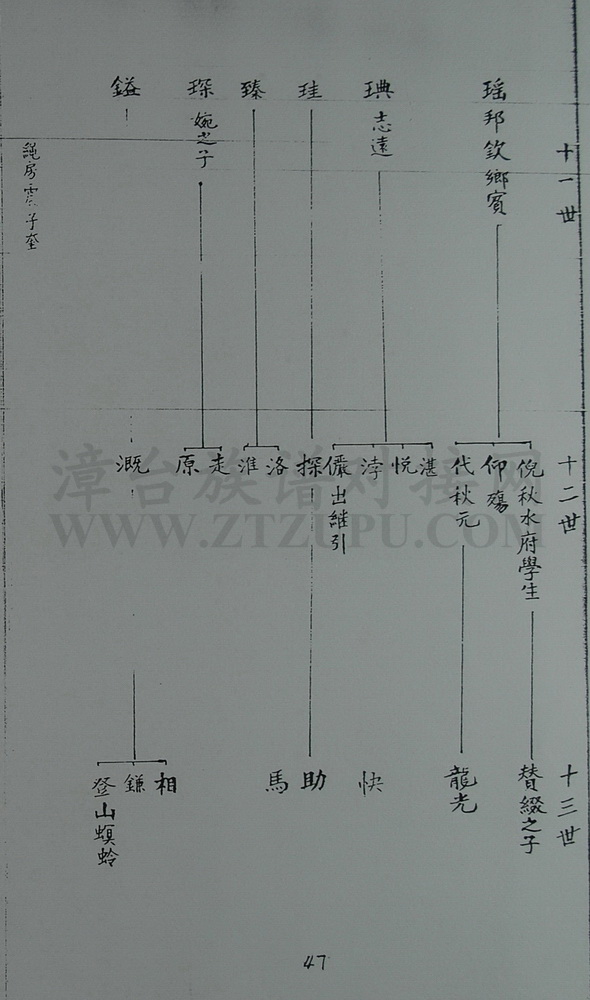 十一世
瑶邦欽鄉賓
琠志遠
珪
臻
琛婉之子
鎰
繩房雲子奎
十二世
倪秋水府學生
仰殤
代秋元
湛
悦
浡
儼出継引
探
洛
淮
走
原
溉
十三世
替綴之子
龍光
快
助
馬
相
鎌
登山螟蛉
漳台族谱对接网
WWW.ZTZUPU.COM
47